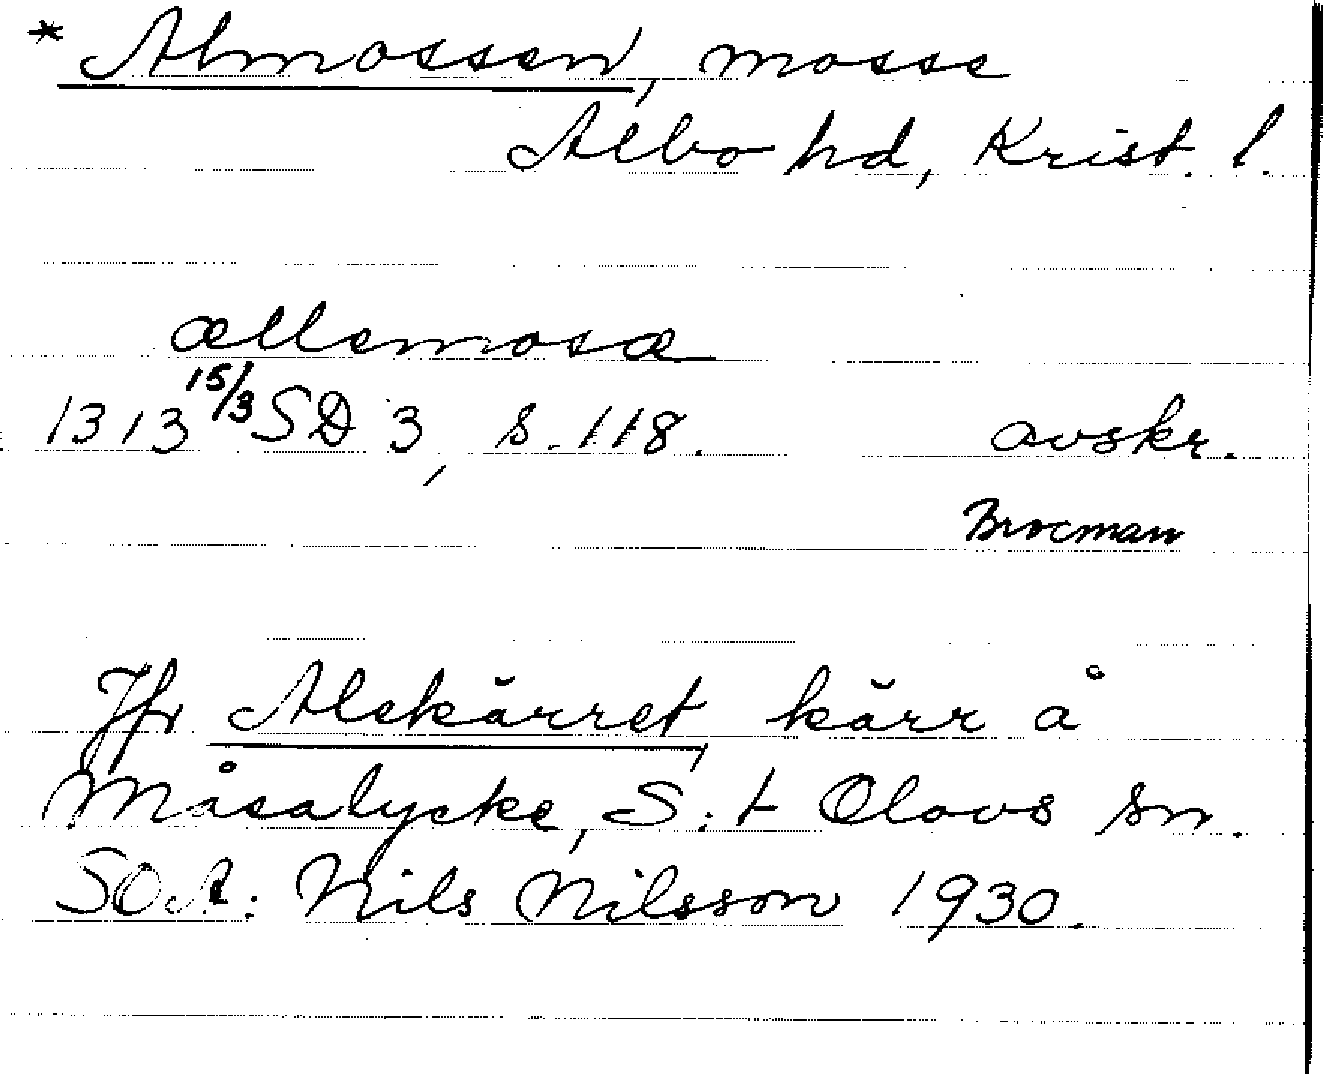 * Almossen, mosse
Albo hd, Krist. l.
ællemosæ
1313 15/3 SD 3, s. 118. avskr.
Brocman
Jfr Alekärret, kärr å
Måsalycke, S:t Olovs sn.
SOA: Nils Nilsson 1930.